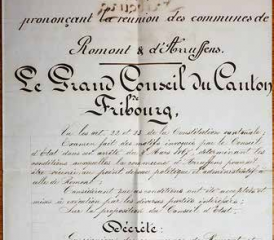 prononçant la réunion des communes de
Romont & d'Arruffens.
Le Grand Conseil du Canton
de
Fribourg,
Vu les art. 22 et 23 de la Constitution cantonale;
Examen fait des motifs invoqués par le Conseil
d'Etat dans un arrêté du 7 Mars déterminant les
conditions auxquelles la commune d'Arruffens pourrait
être réunie, au point de vue politique et administratif à
celle de Romont;
Considérant que ces conditions ont été acceptées et
mises à exécution par les diverses parties intéressées;
Sur la proposition du Conseil d'Etat;
Décrète: